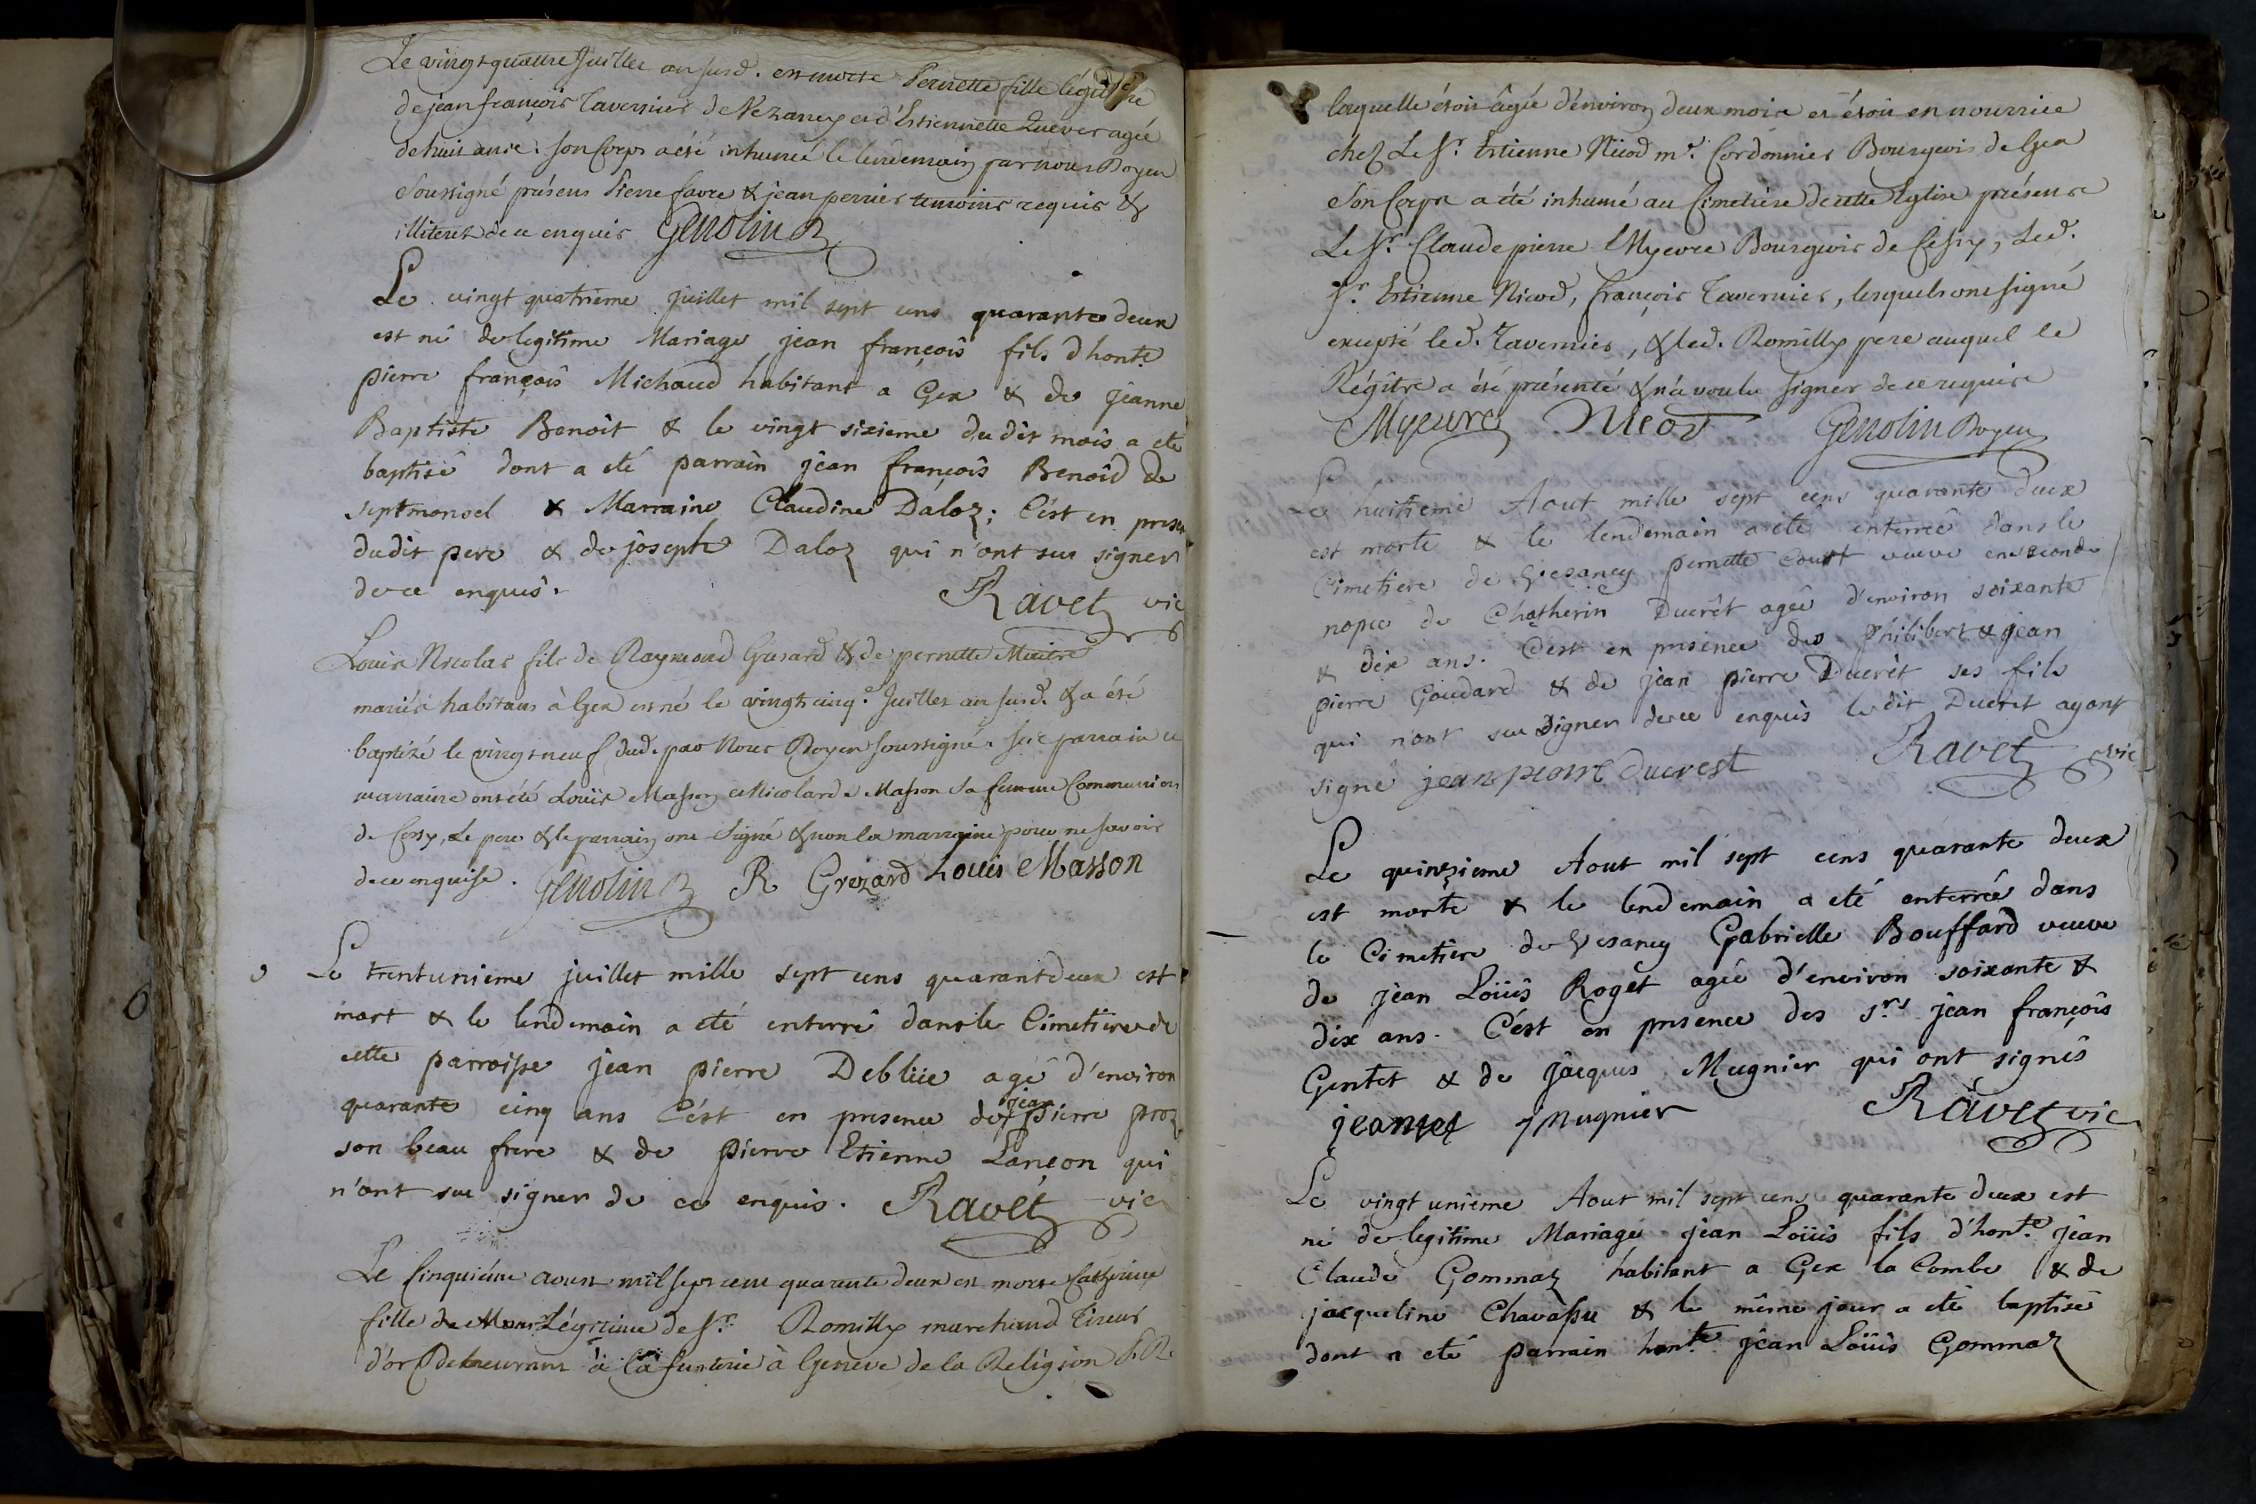 Le vingt quattre Juillet an susd. est morte Pernette fille légitime
de jean françois Tavernier de Vezancy et d'Estiennette Quever agée
de huit ans : son Corps a été inhumé le lendemain par nous Doyen
soussigné présens Pierre favre & jean perrier temoins requis &
illiteres de ce enquis Genolin D
Le vingt quatrieme juillet mil sept cens quarante deux
est né de legitime Mariage jean françois fils d'hont.
pierre françois Michaud habitant a Gex & de jeanne
Baptiste Benoit & le vingt sixieme du dit mois a eté
baptisé dont a eté parrain jean françois Benoid de
septmoncel & Marraine Claudine Daloz ; C'est en presen
dudit pere & de joseph Daloz qui n'ont sceu signer
de ce enquis. Ravet vic
Louis Nicolas fils de Raymond Gusard & de pernette Maitre
mariés habitans à Gex est né le vingt cinq.e Juillet an susd. & a été
baptizé le vingt neuf dud. par Nous Doyen soussigné. Ses parrain et
marraine ont été Louis Masson et Nicolarde Masson sa femme Communion
de Cessy, Le pere & le parrain ont signé & non la marraine pour ne savoir
de ce enquise. Genolin D R Grezard Louis Masson
Le trentunieme juillet mille sept cens quarant deux est
mort & le lendemain a eté enterré dans le Cimetiere de
cette parroisse jean pierre Deblüe agé d'environ
quarante cinq ans C'est en presence de jean pierre proz
son beau frere & de pierre Etienne Lançon qui
n'ont sceu signer de ce enquis. Ravet vic
Le Cinquiéme aoust mil sept cent quarante deux est morte Catherine
fille de légitime de Sr. Romilly marchand Tireur
d'or Demeurant à la fusterie à Geneve de la Religion P.R.
laquelle étoit âgée d'environ deux mois et étoit en nourrice
chez Le Sr. Estienne Nicod m.e Cordonnier Bourgeois de Gex
son Corps a été inhumé au Cimetière de cette Eglise présens
Le Sr. Claude pierre Myevre Bourgeois de Cessy, Led.
Sr. Estienne Nicod, françois Tavernier, lesquels ont signé
excepté led. Tavernier, & led. Romilly pere auquel le
Régitre a été présenté & n'a voulu signer de ce requis
Myevre Nicod Genolin Doyen
Le huitieme Aout mille sept cens quarante deux
est morte & le lendemain a eté enterreé dans le
Cimetiere de Vesancy pernette Court veuve en seconde
nopce de Chatherin Ducrêt agée d'environ soixante
& dix ans. C'est en presence des Philibert & jean
pierre Goudard & de jean pierre Ducrêt ses fils
qui n'ont sceu signer de ce enquis le dit Ducret ayant
signé jean pierre ducrest Ravet vic
Le quinzieme Aout mil sept cens quarante deux
est morte & le lendemain a eté enterreé dans
le Cimetiere de Vesancy Gabrielle Bouffard veuve
de jean Loüis Rogêt agée d'environ soixante &
dix ans. C'est en presence des S.rs jean françois
Gentet & de jacques Mugnier qui ont signés
jeantet j Mugnier Ravet vic
Le vingt unieme Aout mil sept cens quarante deux est
né de legitime Mariage jean Loüis fils d'hon.te jean
Claude Gommaz habitant a Gex la Combe & de
jacqueline Chavassu & le même jour a eté baptisé
dont a eté parrain hon.te jean Loüis Gommaz